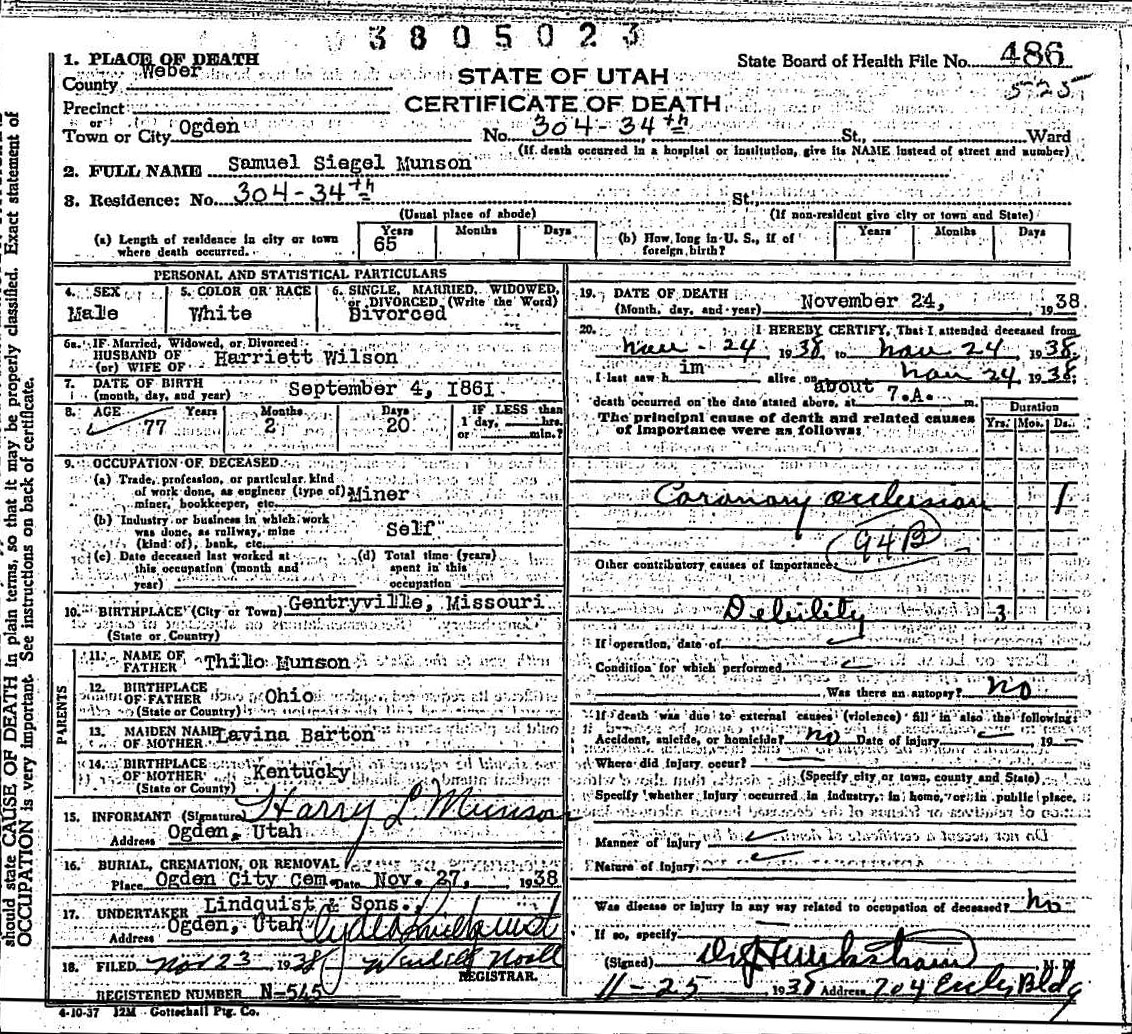 3805023
1. PLACE OF DEATH
State Board of Health File No. 486
County Weber
STATE OF UTAH
525
Precinct
CERTIFICATE OF DEATH
or
Town or City Ogden No. 304-34th St., Ward
(If death occurred in a hospital or institution, give its NAME instead of street and number)
2. FULL NAME Samuel Siegel Munson
3. Residence: No. 304-34th St.,
(Usual place of abode) (If non-resident give city or town and State)
(a) Length of residence in city or town where death occurred. Years 65 Months Days
(b) How long in U. S., if of foreign birth? Years Months Days
PERSONAL AND STATISTICAL PARTICULARS
4. SEX Male
5. COLOR OR RACE White
6. SINGLE, MARRIED, WIDOWED, or DIVORCED, (Write the Word) Divorced
6a. IF Married, Widowed, or Divorced
HUSBAND OF
(or) WIFE OF Harriett Wilson
7. DATE OF BIRTH
(month, day, and year) September 4, 1861
8. AGE Years 77 Months 2 Days 20 IF LESS than 1 day, hrs. or min.?
9. OCCUPATION OF DECEASED
(a) Trade, profession, or particular kind
of work done, as engineer (type of)
miner, bookkeeper, etc. Miner
(b) Industry or business in which work
was done, as railway, mine
(kind of), bank, etc. Self
(c) Date deceased last worked at
this occupation (month and
year)
(d) Total time (years)
spent in this
occupation
10. BIRTHPLACE (City or Town) Gentryville, Missouri
(State or Country)
PARENTS
11. NAME OF
FATHER Thilo Munson
12. BIRTHPLACE
OF FATHER Ohio
(State or Country)
13. MAIDEN NAME
OF MOTHER Lavina Barton
14. BIRTHPLACE
OF MOTHER Kentucky
(State or Country)
15. INFORMANT (Signature) Harry L. Munson
Address Ogden, Utah
16. BURIAL, CREMATION, OR REMOVAL
Place Ogden City Cem. Date Nov. 27, 1938
17. UNDERTAKER Lindquist & Sons.
Address Ogden, Utah
18. FILED Nov 23 1938
REGISTRAR.
REGISTERED NUMBER N-545
4-10-37 12M Gottschall Ptg. Co.
19. DATE OF DEATH
(Month, day, and year) November 24, 1938.
20. I HEREBY CERTIFY, That I attended deceased from
Nov - 24 1938 to Nov 24 1938.
I last saw him alive on Nov 24 1938;
death occurred on the date stated above, at about 7.A. m.
The principal cause of death and related causes
of importance were as follows:
Duration
Yrs. Mos. Ds.
Coronary occlusion 1
94B
Other contributory causes of importance:
Debility 3
If operation, date of
Condition for which performed
Was there an autopsy? no
If death was due to external causes (violence) fill in also the following:
Accident, suicide, or homicide? no Date of injury 19
Where did injury occur?
(Specify city or town, county and State)
Specify whether injury occurred in industry, in home, or in public place.
Manner of injury
Nature of injury
Was disease or injury in any way related to occupation of deceased? no
If so, specify
(Signed) M. D.
11-25 1938 Address 704 Eccles Bldg
should state CAUSE OF DEATH in plain terms, so that it may be properly classified. Exact statement of
OCCUPATION is very important. See instructions on back of certificate.